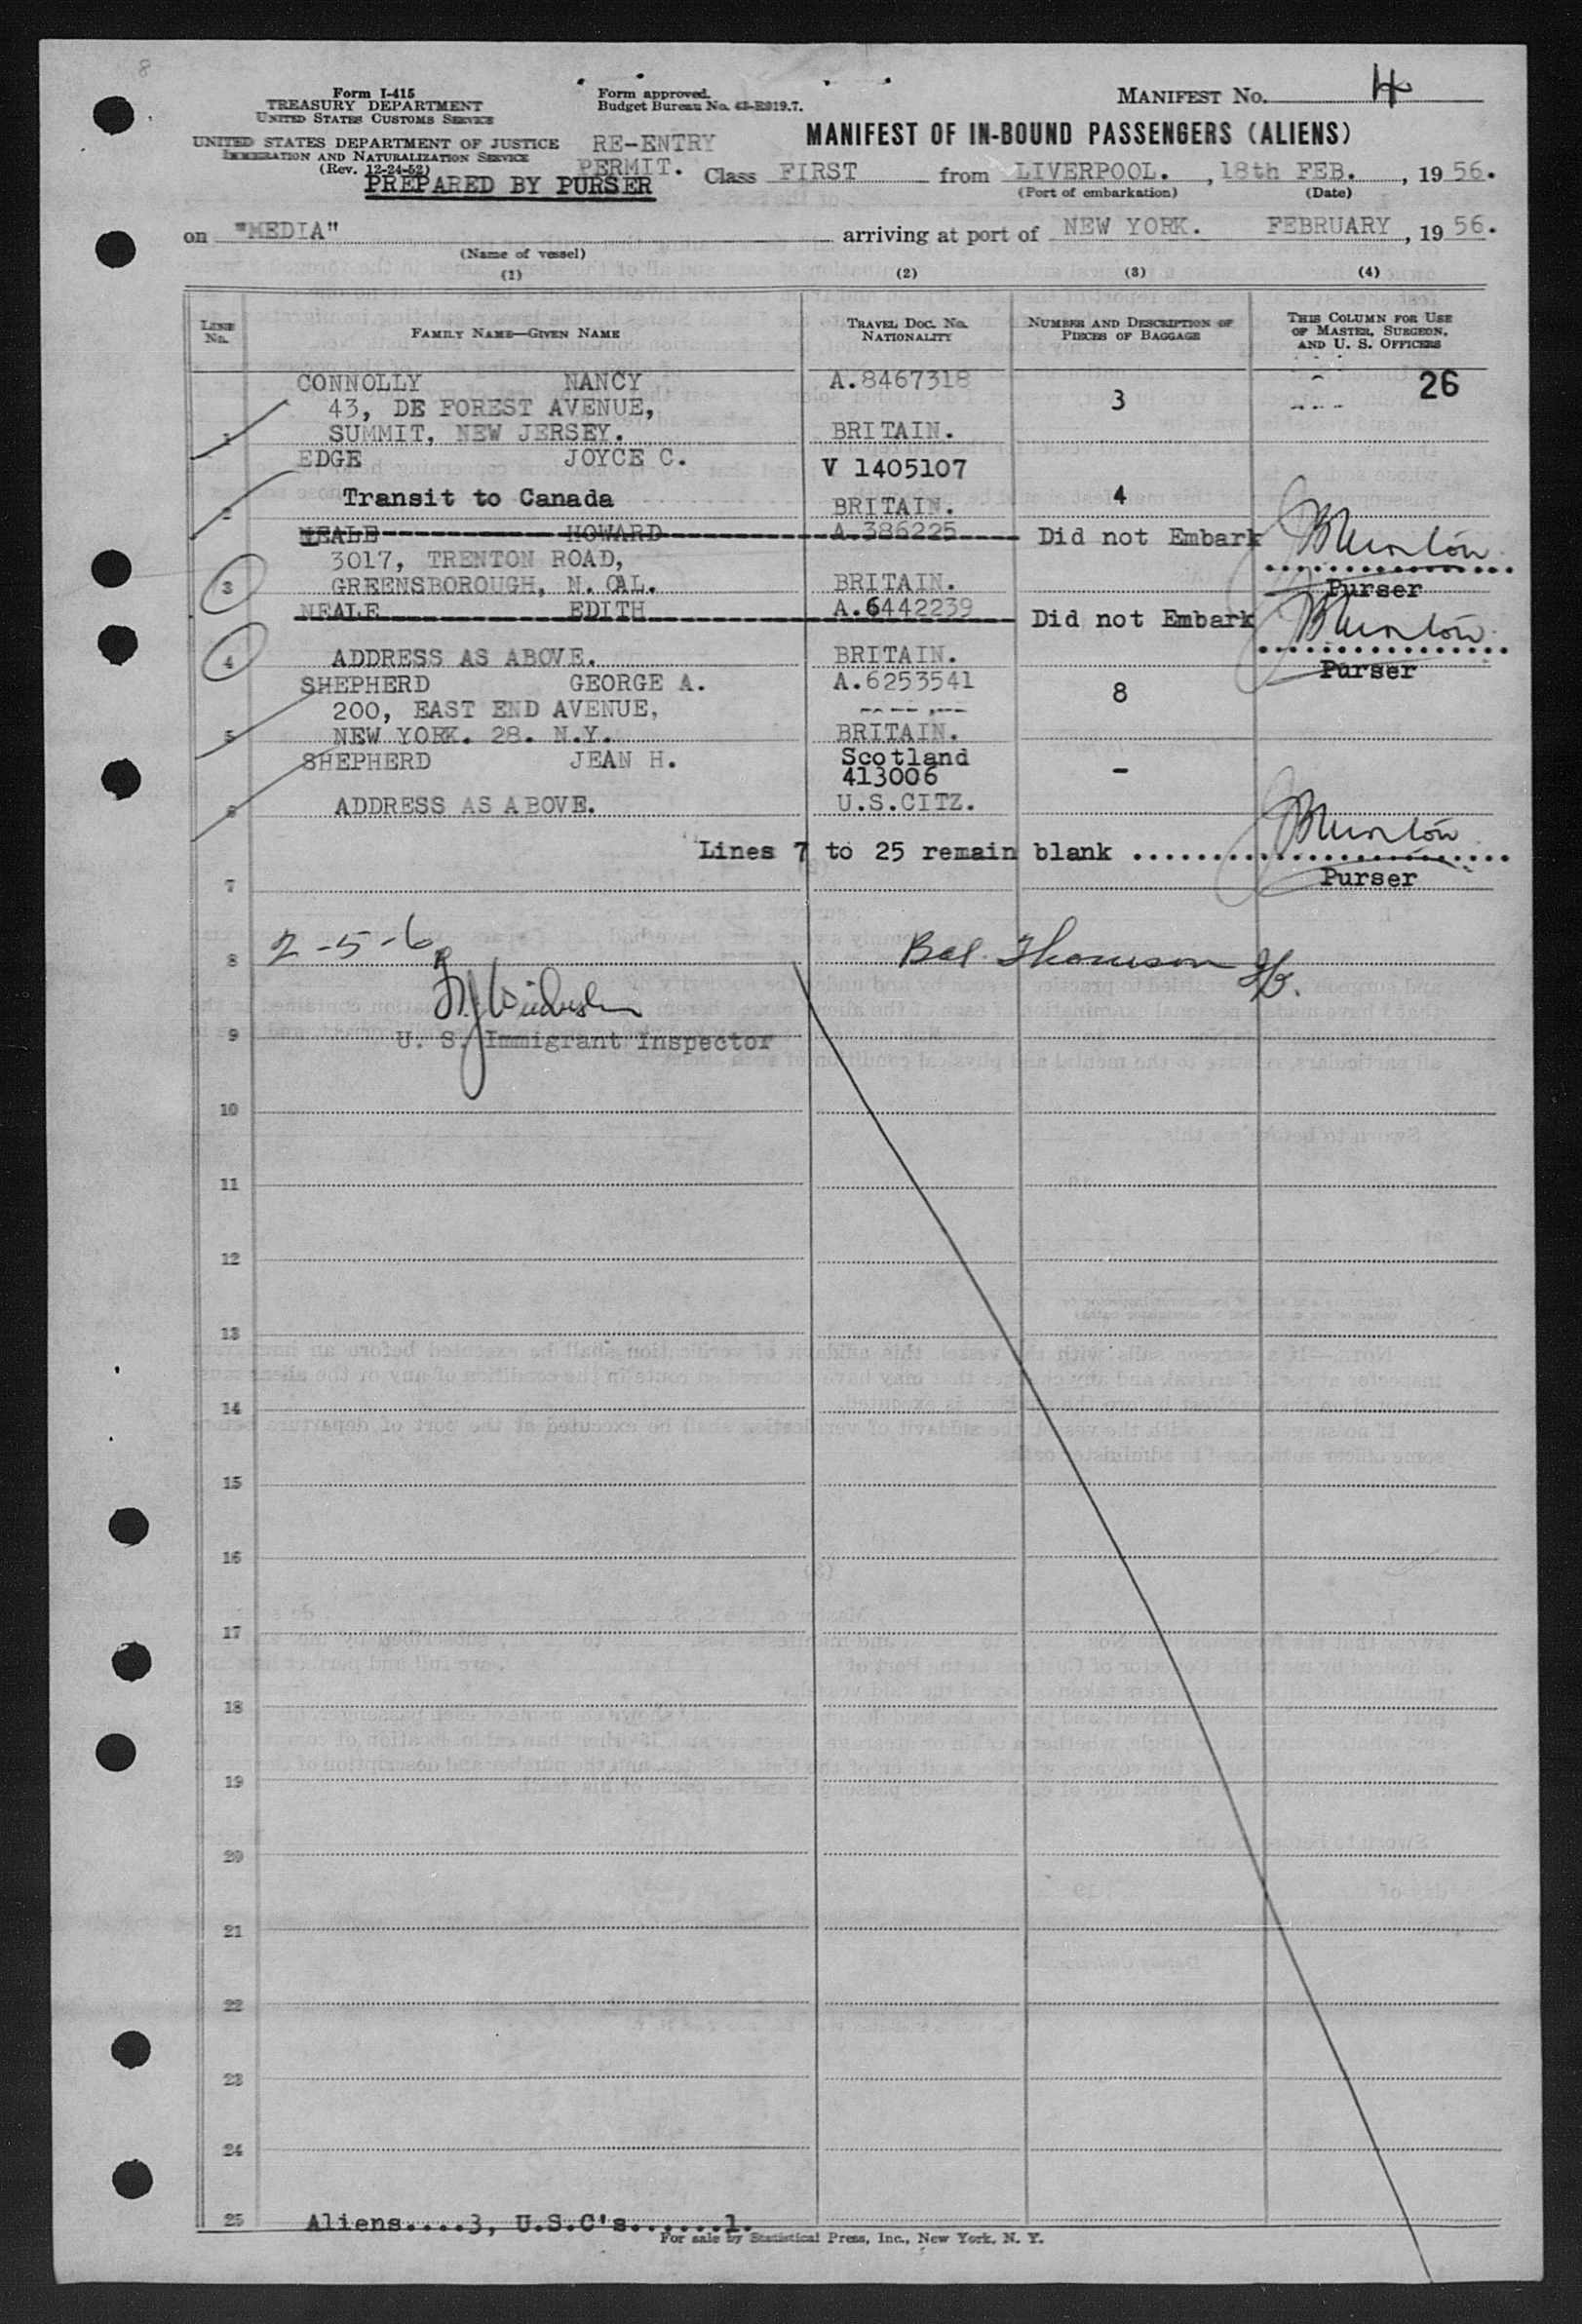 8
Form I-415
TREASURY DEPARTMENT
UNITED STATES CUSTOMS SERVICE
UNITED STATES DEPARTMENT OF JUSTICE
IMMIGRATION AND NATURALIZATION SERVICE
(Rev. 12-24-52)
PREPARED BY PURSER
Form approved.
Budget Bureau No. 43-R319.7.
RE-ENTRY
PERMIT.
MANIFEST No. 4
MANIFEST OF IN-BOUND PASSENGERS (ALIENS)
Class FIRST from LIVERPOOL. , 18th FEB. , 19 56.
(Port of embarkation) (Date)
on "MEDIA" arriving at port of NEW YORK. FEBRUARY , 19 56.
(Name of vessel)
(1) (2) (3) (4)
LINE No. FAMILY NAME—GIVEN NAME TRAVEL DOC. No. NATIONALITY NUMBER AND DESCRIPTION OF PIECES OF BAGGAGE THIS COLUMN FOR USE OF MASTER, SURGEON, AND U. S. OFFICERS
CONNOLLY NANCY A.8467318 26
43, DE FOREST AVENUE, 3
1 SUMMIT, NEW JERSEY. BRITAIN.
EDGE JOYCE C. V 1405107
Transit to Canada 4
2 BRITAIN.
NEALE HOWARD A.386225 Did not Embark
3017, TRENTON ROAD,
3 GREENSBOROUGH, N. CAL. BRITAIN. Purser
NEALE EDITH A.6442239 Did not Embark
4 ADDRESS AS ABOVE. BRITAIN. Purser
SHEPHERD GEORGE A. A.6253541 8
200, EAST END AVENUE,
5 NEW YORK. 28. N.Y. BRITAIN.
SHEPHERD JEAN H. Scotland -
413006
6 ADDRESS AS ABOVE. U.S.CITZ.
Lines 7 to 25 remain blank ..........................
7 Purser
8 2-5-6 Thomson
9 U. S. Immigrant Inspector
10
11
12
13
14
15
16
17
18
19
20
21
22
23
24
25 Aliens....3, U.S.C's.......1.
For sale by Statistical Press, Inc., New York, N. Y.